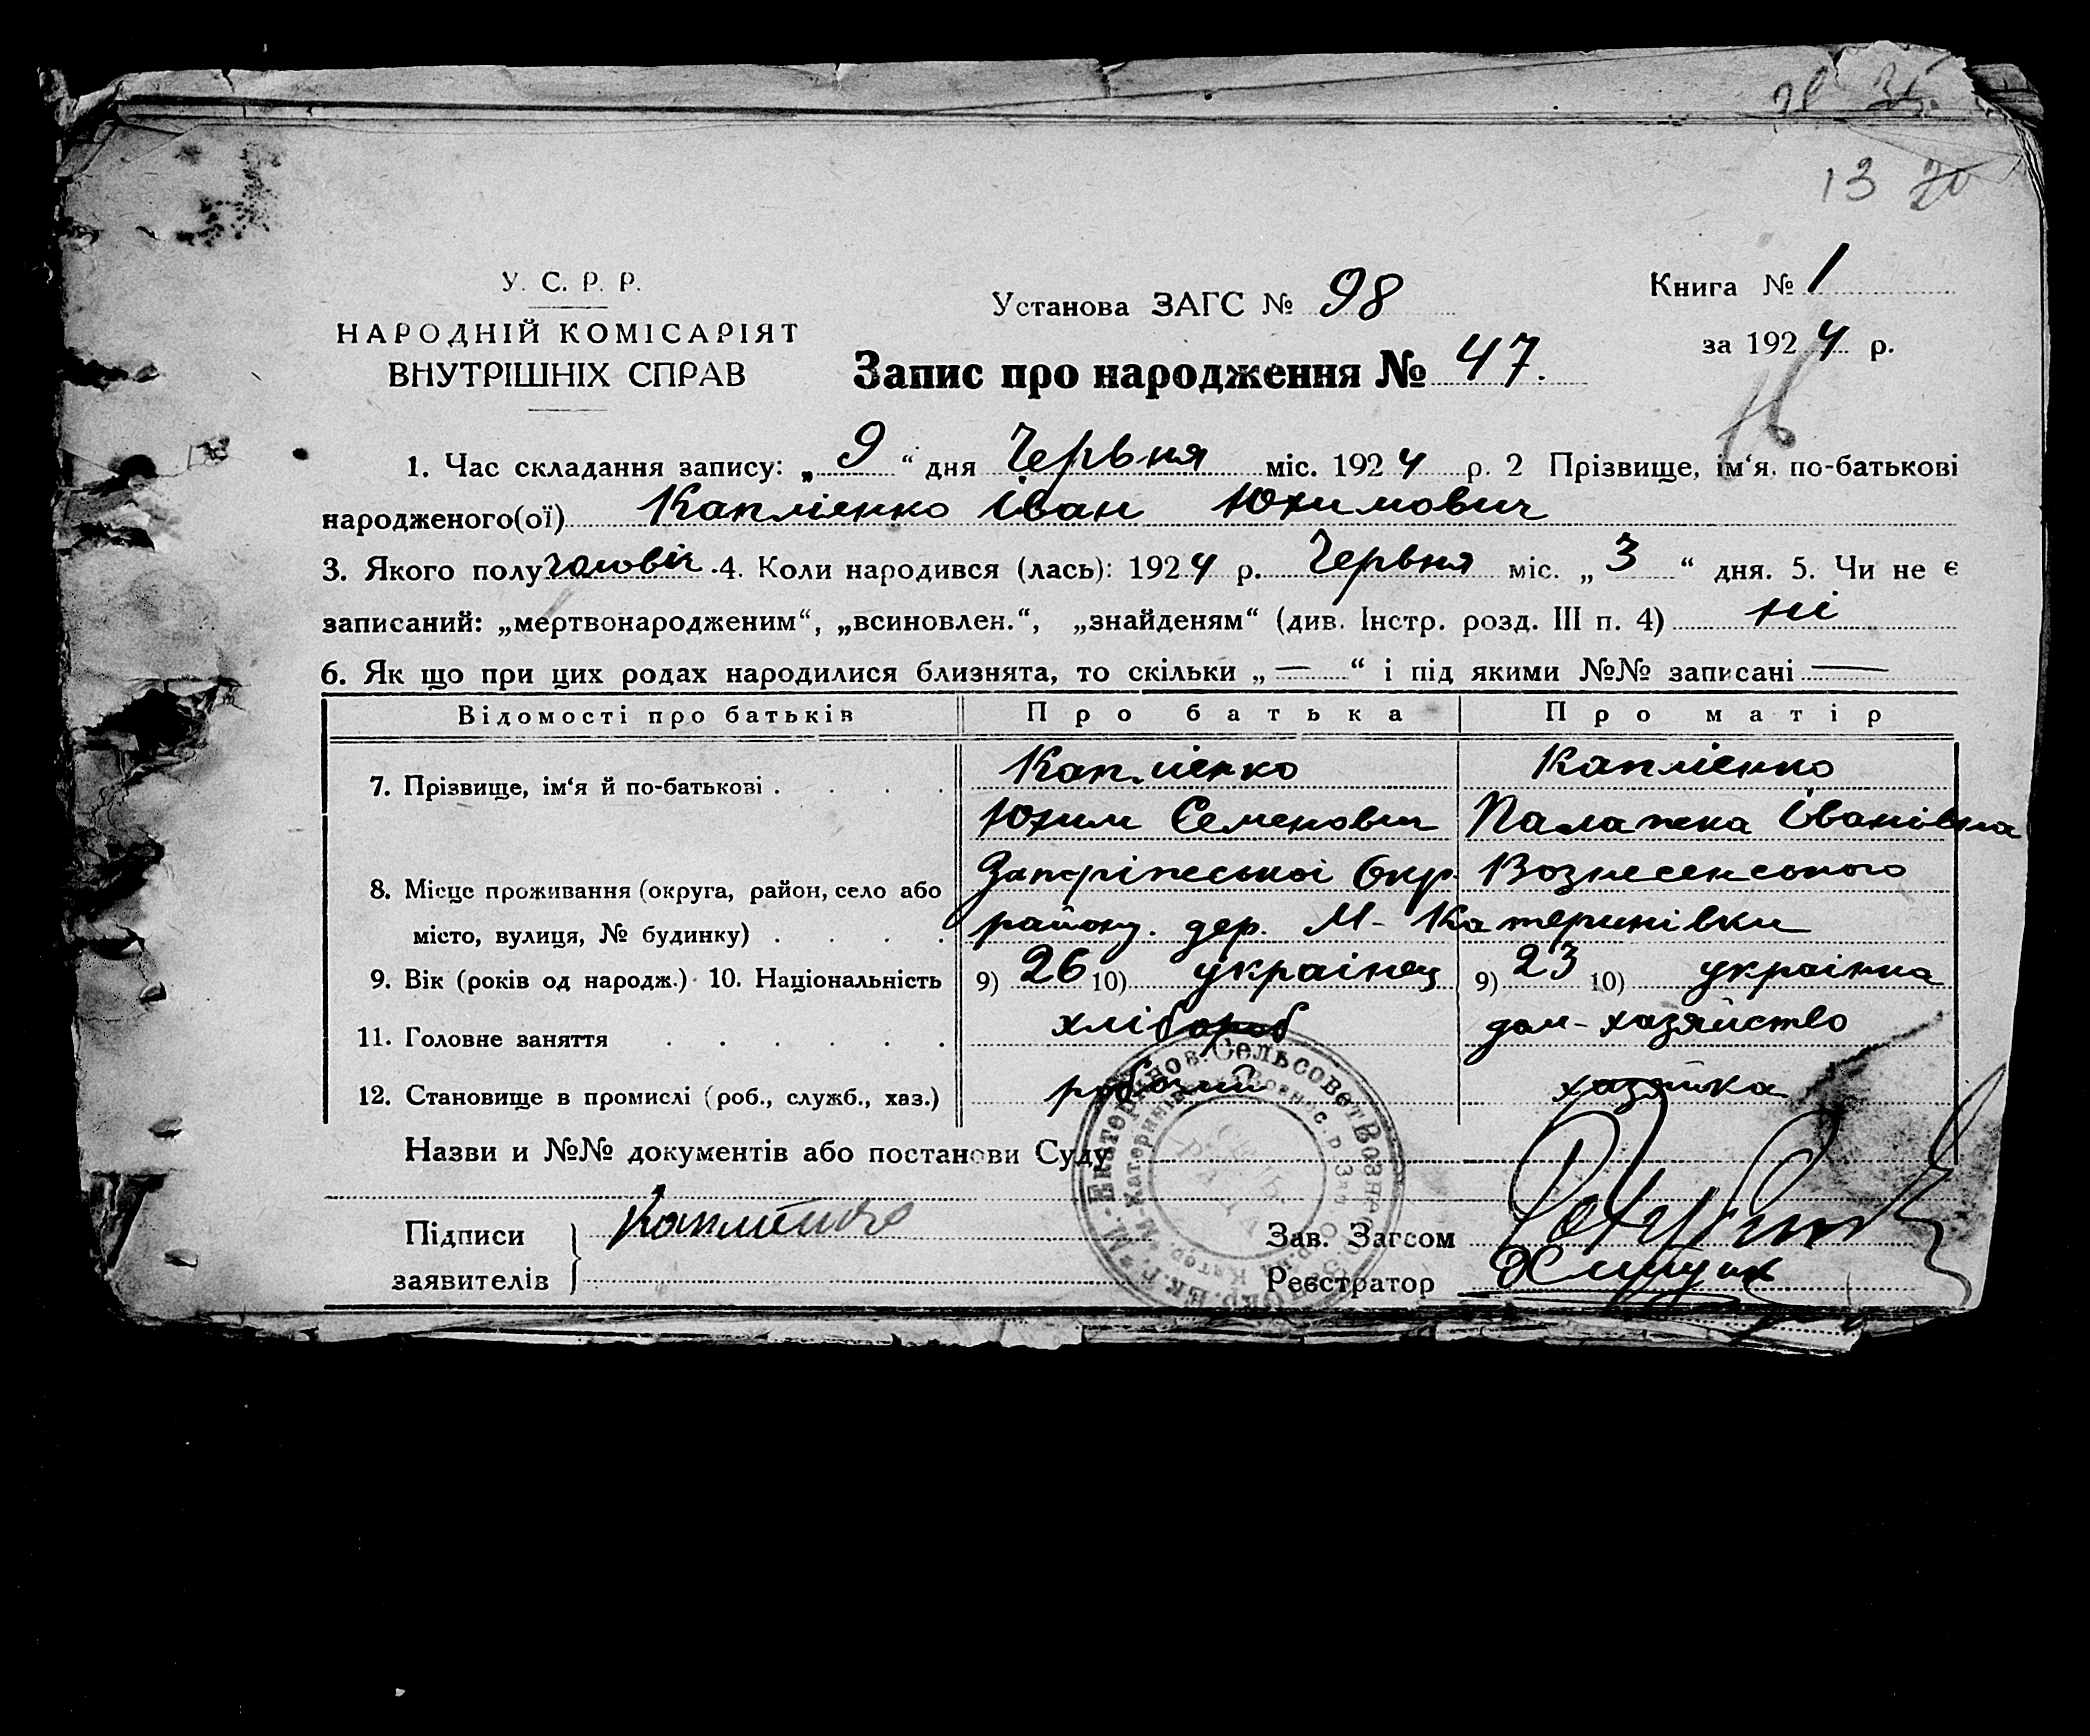 13 20
У. С. Р. Р.
НАРОДНІЙ КОМІСАРІЯТ
ВНУТРІШНІХ СПРАВ
Установа ЗАГС № 98
Книга № 1
за 1924 р.
Запис про народження № 47.
1. Час складання запису: „9“ дня Червня міс. 1924 р. 2 Прізвище, ім‘я, по-батькові
народженого(ої) Каплієнко Іван Юхимович
3. Якого полу чоловіч. 4. Коли народився (лась): 1924 р. Червня міс. „3“ дня. 5. Чи не є
записаний: „мертвонародженим“, „всиновлен.“, „знайденям“ (див. Інстр. розд. III п. 4) ні
6. Як що при цих родах народилися близнята, то скільки „—“ і під якими №№ записані —
Відомості про батьків Про батька Про матір
7. Прізвище, ім‘я й по-батькові Каплієнко Каплієнко
Юхим Семенович Палажка Іванівна
8. Місце проживання (округа, район, село або Запоріжської Окр. Вознесенського
місто, вулиця, № будинку) району. дер. М-Катеринівки
9. Вік (років од народж.) 10. Національність 9) 26 10) українець 9) 23 10) українка
11. Головне заняття хлібороб дом-хазяйство
12. Становище в промислі (роб., служб., хаз.) робочий хазяйка
Назви и №№ документів або постанови Суду
Підписи
заявителів
Каплієнко
Зав. Загсом
Реєстратор
М.-Екатеринов. Сельсовет Вознес
СІЛЬ
РАДА